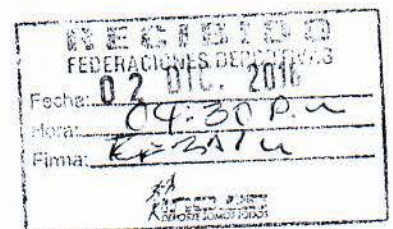 RECIBIDO
FEDERACIONES DEPORTIVAS
Fecha: 02 DIC. 2016
Hora: 04:30 P.M
Firma:
DEPORTE SOMOS TODOS